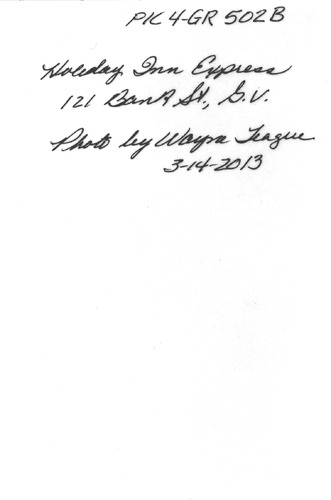 PIC 4-GR 502B
Holiday Inn Express
121 Bank St., G.V.
Photo by Wayne Teague
3-14-2013